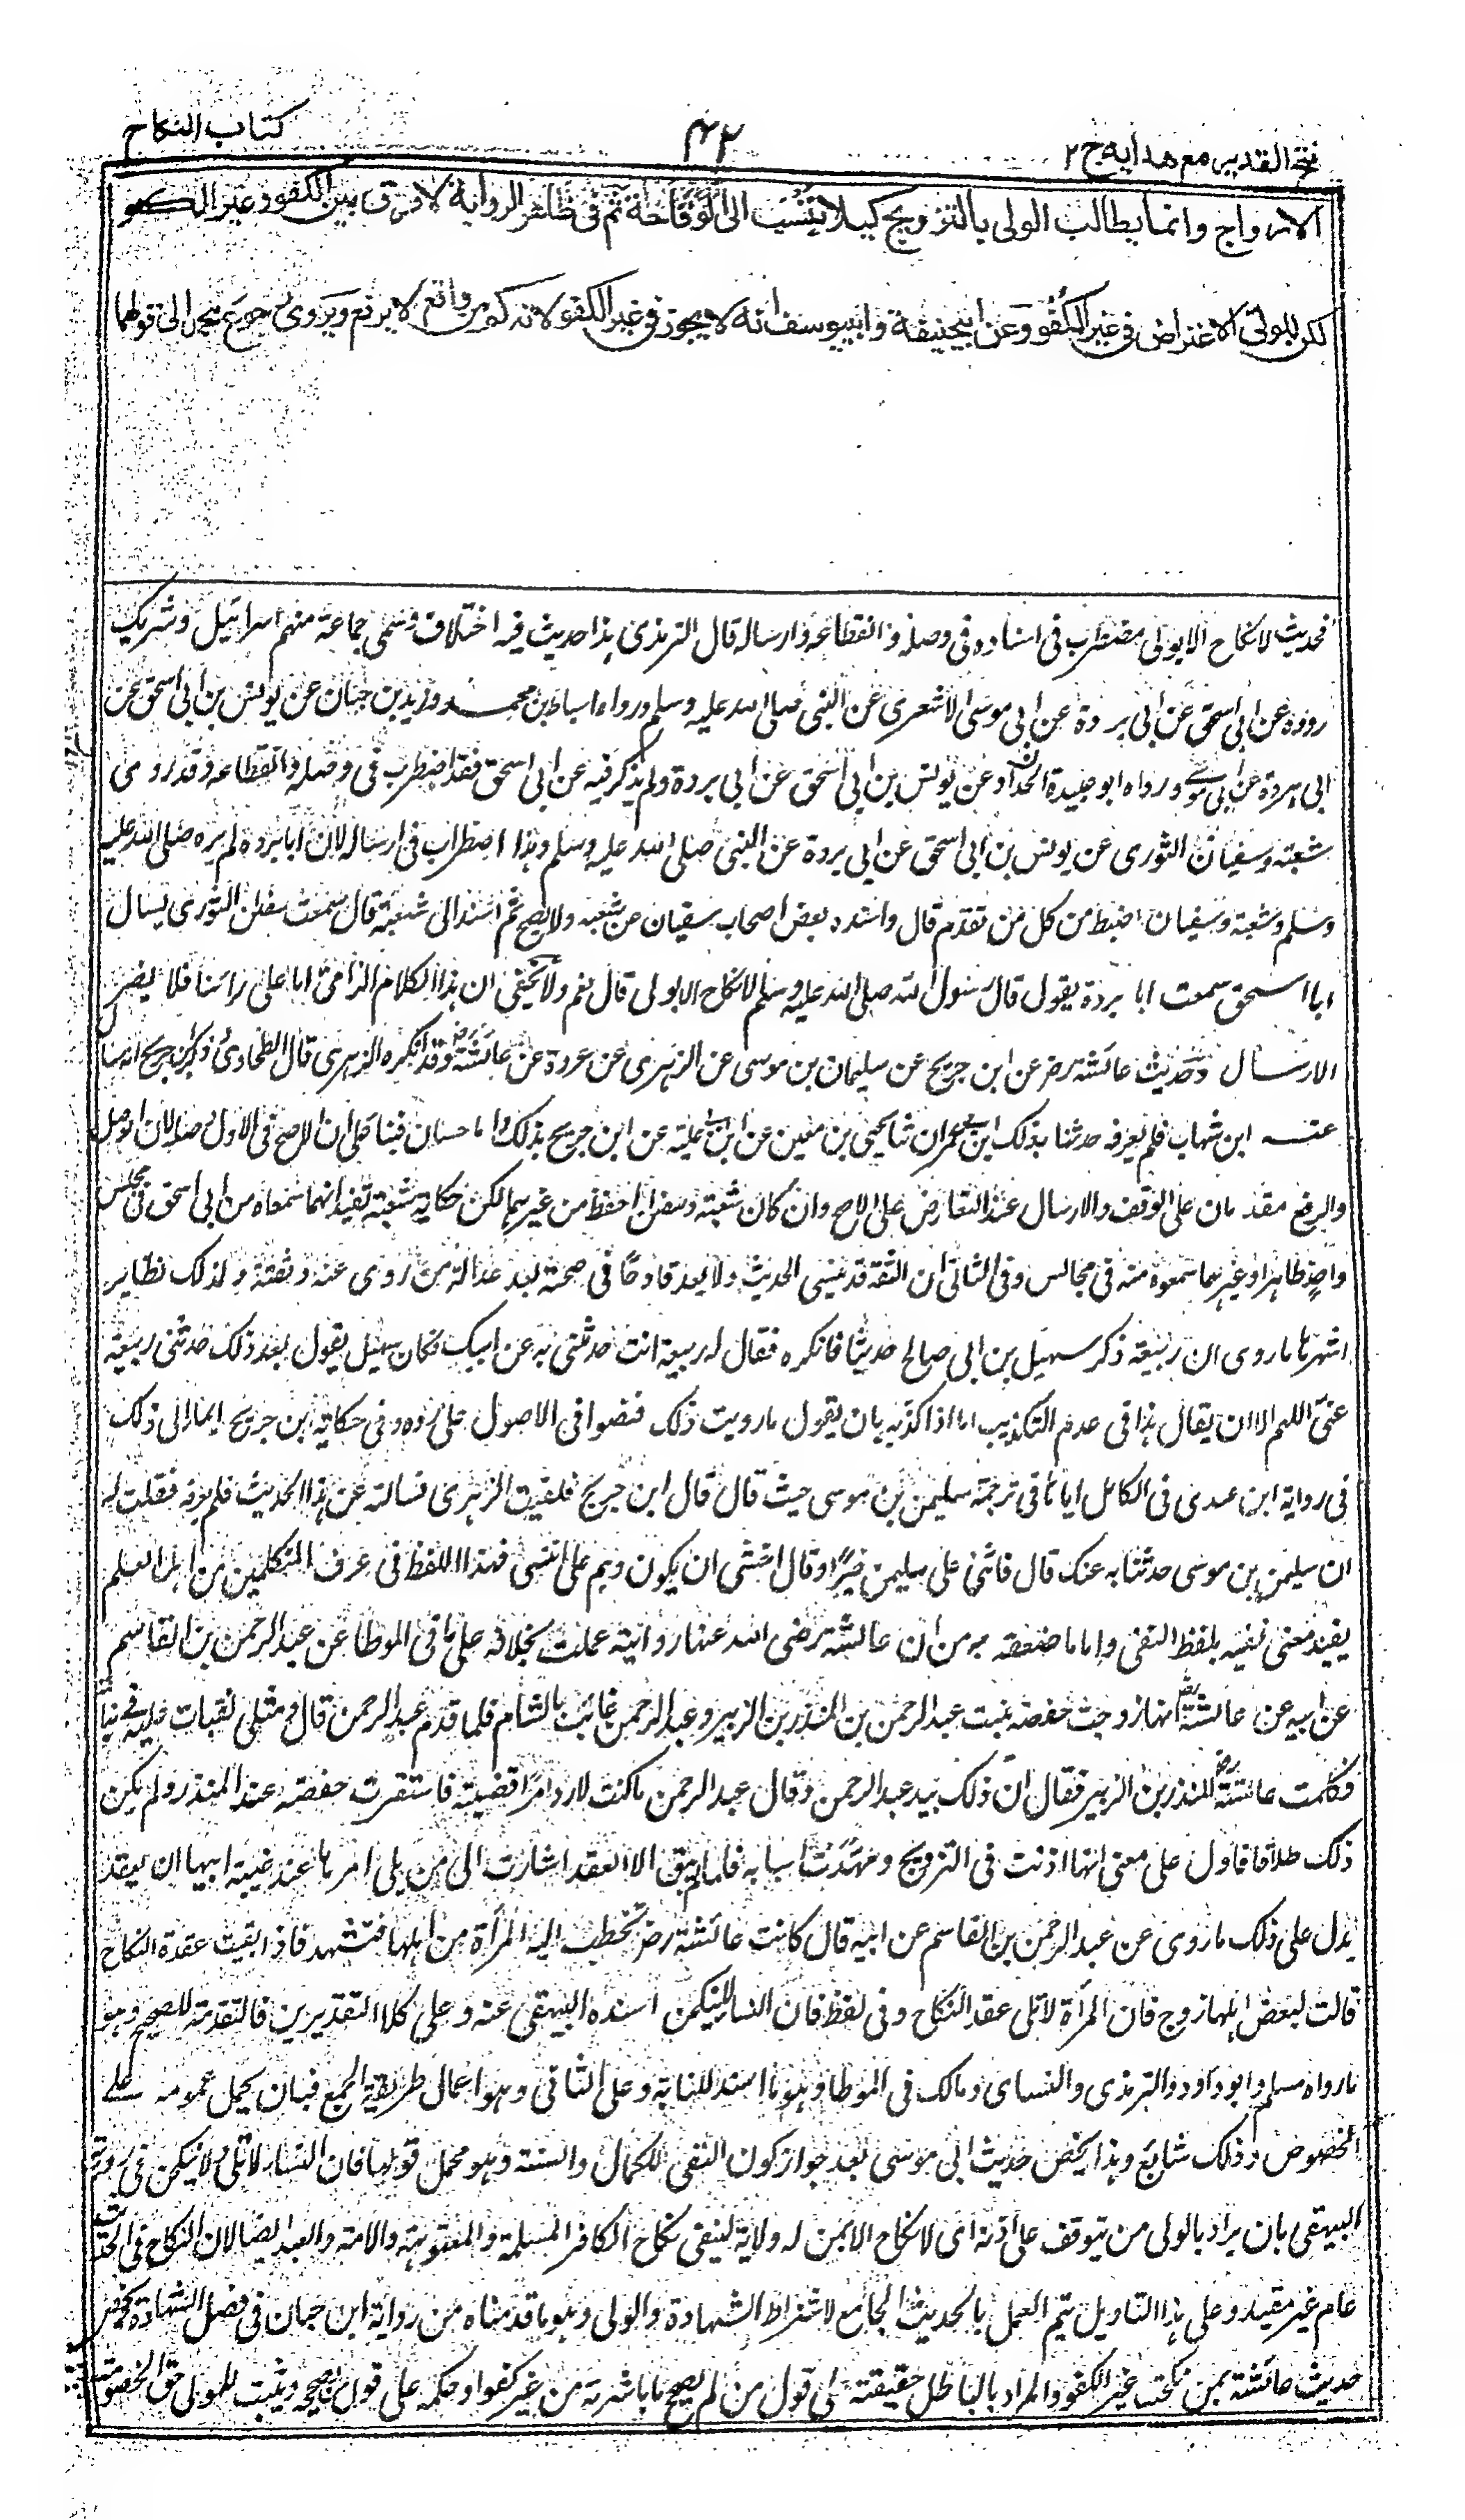 فتح القدير مع هدايه ج ٢
٤٢
كتاب النكاح
الازواج وانما يطالب الولى بالتزويج كيلا تنسب الى الوقاحة ثم فى ظاهر الرواية لا فرق بين الكفو وغير الكفو
لكن للولى الاعتراض فى غير الكفو وعن ابيحنيفة وابييوسف انه لا يجوز فى غير الكفو لانه كم من واقع لا يرفع ويروى رجوع محمد الى قولهما
فحديث لا نكاح الا بولى مضطرب فى اسناده فى وصله وانقطاعه وارساله قال الترمذى هذا حديث فيه اختلاف وسمى جماعة منهم اسرائيل وشريك
رووه عن ابى اسحق عن ابى بردة عن ابى موسى الاشعرى عن النبى صلى الله عليه وسلم ورواه اسباط بن محمد وزيد بن حبان عن يونس بن ابى اسحق عن
ابى بردة عن ابى موسى ورواه ابو عبيدة الحداد عن يونس بن ابى اسحق عن ابى بردة ولم يذكر فيه عن ابى اسحق فقد اضطرب فى وصله وانقطاعه وقد روى
شعبة وسفيان الثورى عن يونس بن ابى اسحق عن ابى بردة عن النبى صلى الله عليه وسلم وهذا اضطراب فى ارساله لان ابا بردة لم يره صلى الله عليه
وسلم وشعبة وسفيان اضبط من كل من تقدم قال واسنده بعض اصحاب سفيان عن شعبه ولا يصح ثم اسند الى شعبة قال سمعت سفين الثورى يسال
ابا اسحق سمعت ابا بردة يقول قال رسول الله صلى الله عليه وسلم لا نكاح الا بولى قال نعم ولا يخفى ان هذا الكلام الزامى اما على راينا فلا يضر
الارسال وحديث عائشة رض عن ابن جريج عن سليمان بن موسى عن الزهرى عن عروة عن عائشة رض وقد انكره الزهرى قال الطحاوى وذكر ابن جريج انه سال
عنه ابن شهاب فلم يعرفه حدثنا بذلك ابن ابى عمران ثنا يحيى بن معين عن ابن علية عن ابن جريج بذلك واما حسان فبناء على ان الاصح فى الاول وصله لان الوصل
والرفع مقدمان على الوقف والارسال عند التعارض على الاصح وان كان شعبة وسفين احفظ من غيرهما لكن حكاية شعبة تفيد انهما سمعاه من ابى اسحق فى مجلس
واحد ظاهرا وغيرهما سمعوه منه فى مجالس وفى الثانى ان الثقة قد ينسى الحديث ولا يعد قادحا فى صحة بعد عدالة من روى عنه وثقته ولذلك نظاير
اشهرها ما روى ان ربيعة ذكر سهيل بن ابى صالح حديثا فانكره فقال له ربيعة انت حدثتنى به عن ابيك فكان سهيل يقول بعد ذلك حدثنى ربيعة
عنى اللهم الا ان يقال هذا فى عدم التكذيب اما اذا كذبه بان يقول ما رويت ذلك فنصوا فى الاصول على رده وفى حكاية ابن جريج ايما الى ذلك
فى رواية ابن عدى فى الكامل اياها فى ترجمة سليمن بن موسى حيث قال قال ابن جريج فلقيت الزهرى فسالته عن هذا الحديث فلم يعرفه فقلت له
ان سليمن بن موسى حدثنا به عنك قال فاثنى على سليمن خيرا وقال اخشى ان يكون وهم على انتهى فهذا اللفظ فى عرف المتكلمين من اهل العلم
يفيد معنى نفيه بلفظ النفى واما ما ضعفه به من ان عائشة رضى الله عنها راويته عملت بخلافه على ما فى الموطا عن عبد الرحمن بن القاسم
عن ابيه عن عائشة رض انها زوجت حفصة بنت عبد الرحمن بن المنذر بن الزبير وعبد الرحمن غائب بالشام فلما قدم عبد الرحمن قال ومثلى يفتات عليه فى بناته
فكلمت عائشة رض المنذر بن الزبير فقال ان ذلك بيد عبد الرحمن وقال عبد الرحمن ما كنت لارد امرا قضيته فاستقرت حفصة عند المنذر ولم يكن
ذلك طلاقا فاول على معنى انها اذنت فى التزويج ومهدت اسبابه فلما لم يبق الا العقد اشارت الى من يلى امرها عند غيبة ابيها ان يعقد
يدل على ذلك ما روى عن عبد الرحمن بن القاسم عن ابيه قال كانت عائشة رض تخطب اليه المرأة من اهلها فتشهد فاذا بقيت عقدة النكاح
قالت لبعض اهلها زوج فان المرأة لا تلى عقد النكاح وفى لفظ فان النسا لا ينكحن اسنده البيهقى عنه وعلى كلا التقديرين فالتقدمة للصحيح وهو
ما رواه مسلم وابو داود والترمذى والنسائى ومالك فى الموطا وهو ما استدللنا به وعلى الثانى وهو اعمال طريقة الجمع فبان يحمل عمومه على
الخصوص وذلك شايع وهذا يخص حديث ابى موسى بعد جواز كون النفى للكمال والسنة وهو محمل قولها فان النساء لا تلى ولا ينكحن فى رواية
البيهقى بان يراد بالولى من يتوقف على اذنه اى لا نكاح الا بمن له ولاية لينفى نكاح الكافر المسلمة والمعتوهة والامة والعبد ايضا لان النكاح فى الحديث
عام غير مقيد وعلى هذا التاويل يتم العمل بالحديث الجامع لاشتراط الشهادة والولى وهو ما قدمناه من رواية ابن حبان فى فصل الشهادة ويخص
حديث عائشة بمن نكحت غير الكفو والمراد بالباطل حقيقته على قول من لم يصحح ما باشرته من غير كفو او حكمه على قول من يصححه ويثبت للولى حق الخصومة